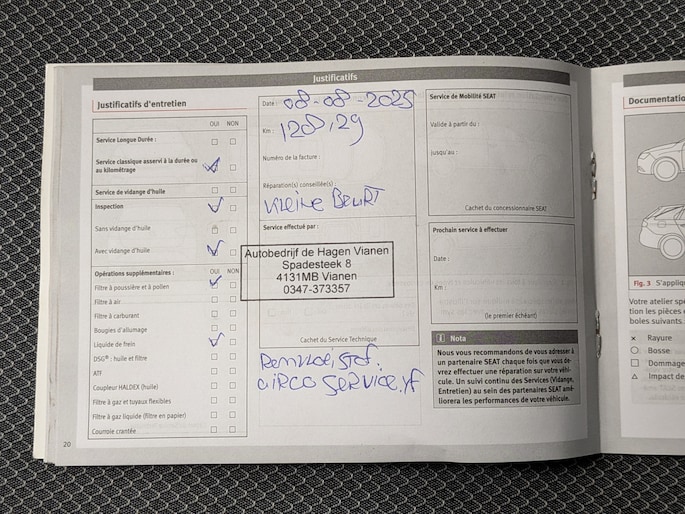 Justificatifs
Justificatifs d'entretien
OUI NON
Service Longue Durée :
Service classique asservi à la durée ou
au kilométrage
Service de vidange d'huile
Inspection
Sans vidange d'huile
Avec vidange d'huile
Opérations supplémentaires : OUI NON
Filtre à poussière et à pollen
Filtre à air
Filtre à carburant
Bougies d'allumage
Liquide de frein
DSG® : huile et filtre
ATF
Coupleur HALDEX (huile)
Filtre à gaz et tuyaux flexibles
Filtre à gaz liquide (filtre en papier)
Courroie crantée
20
Date : 08-08-2025
Km : 128,29
Numéro de la facture :
Réparation(s) conseillée(s) :
Kleine Beurt
Service effectué par :
Autobedrijf de Hagen Vianen
Spadesteek 8
4131MB Vianen
0347-373357
Cachet du Service Technique
Remvloeistof.
Airco Service.yf
Service de Mobilité SEAT
Valide à partir du :
jusqu'au :
Cachet du concessionnaire SEAT
Prochain service à effectuer
Date :
Km :
(le premier échéant)
Nota
Nous vous recommandons de vous adresser à
un partenaire SEAT chaque fois que vous de-
vrez effectuer une réparation sur votre véhi-
cule. Un suivi continu des Services (Vidange,
Entretien) au sein des partenaires SEAT amé-
liorera les performances de votre véhicule.
Documentation
Fig. 3 S'appliqu
Votre atelier spé
tion les pièces
boles suivants
× Rayure
Bosse
Dommage
Impact de